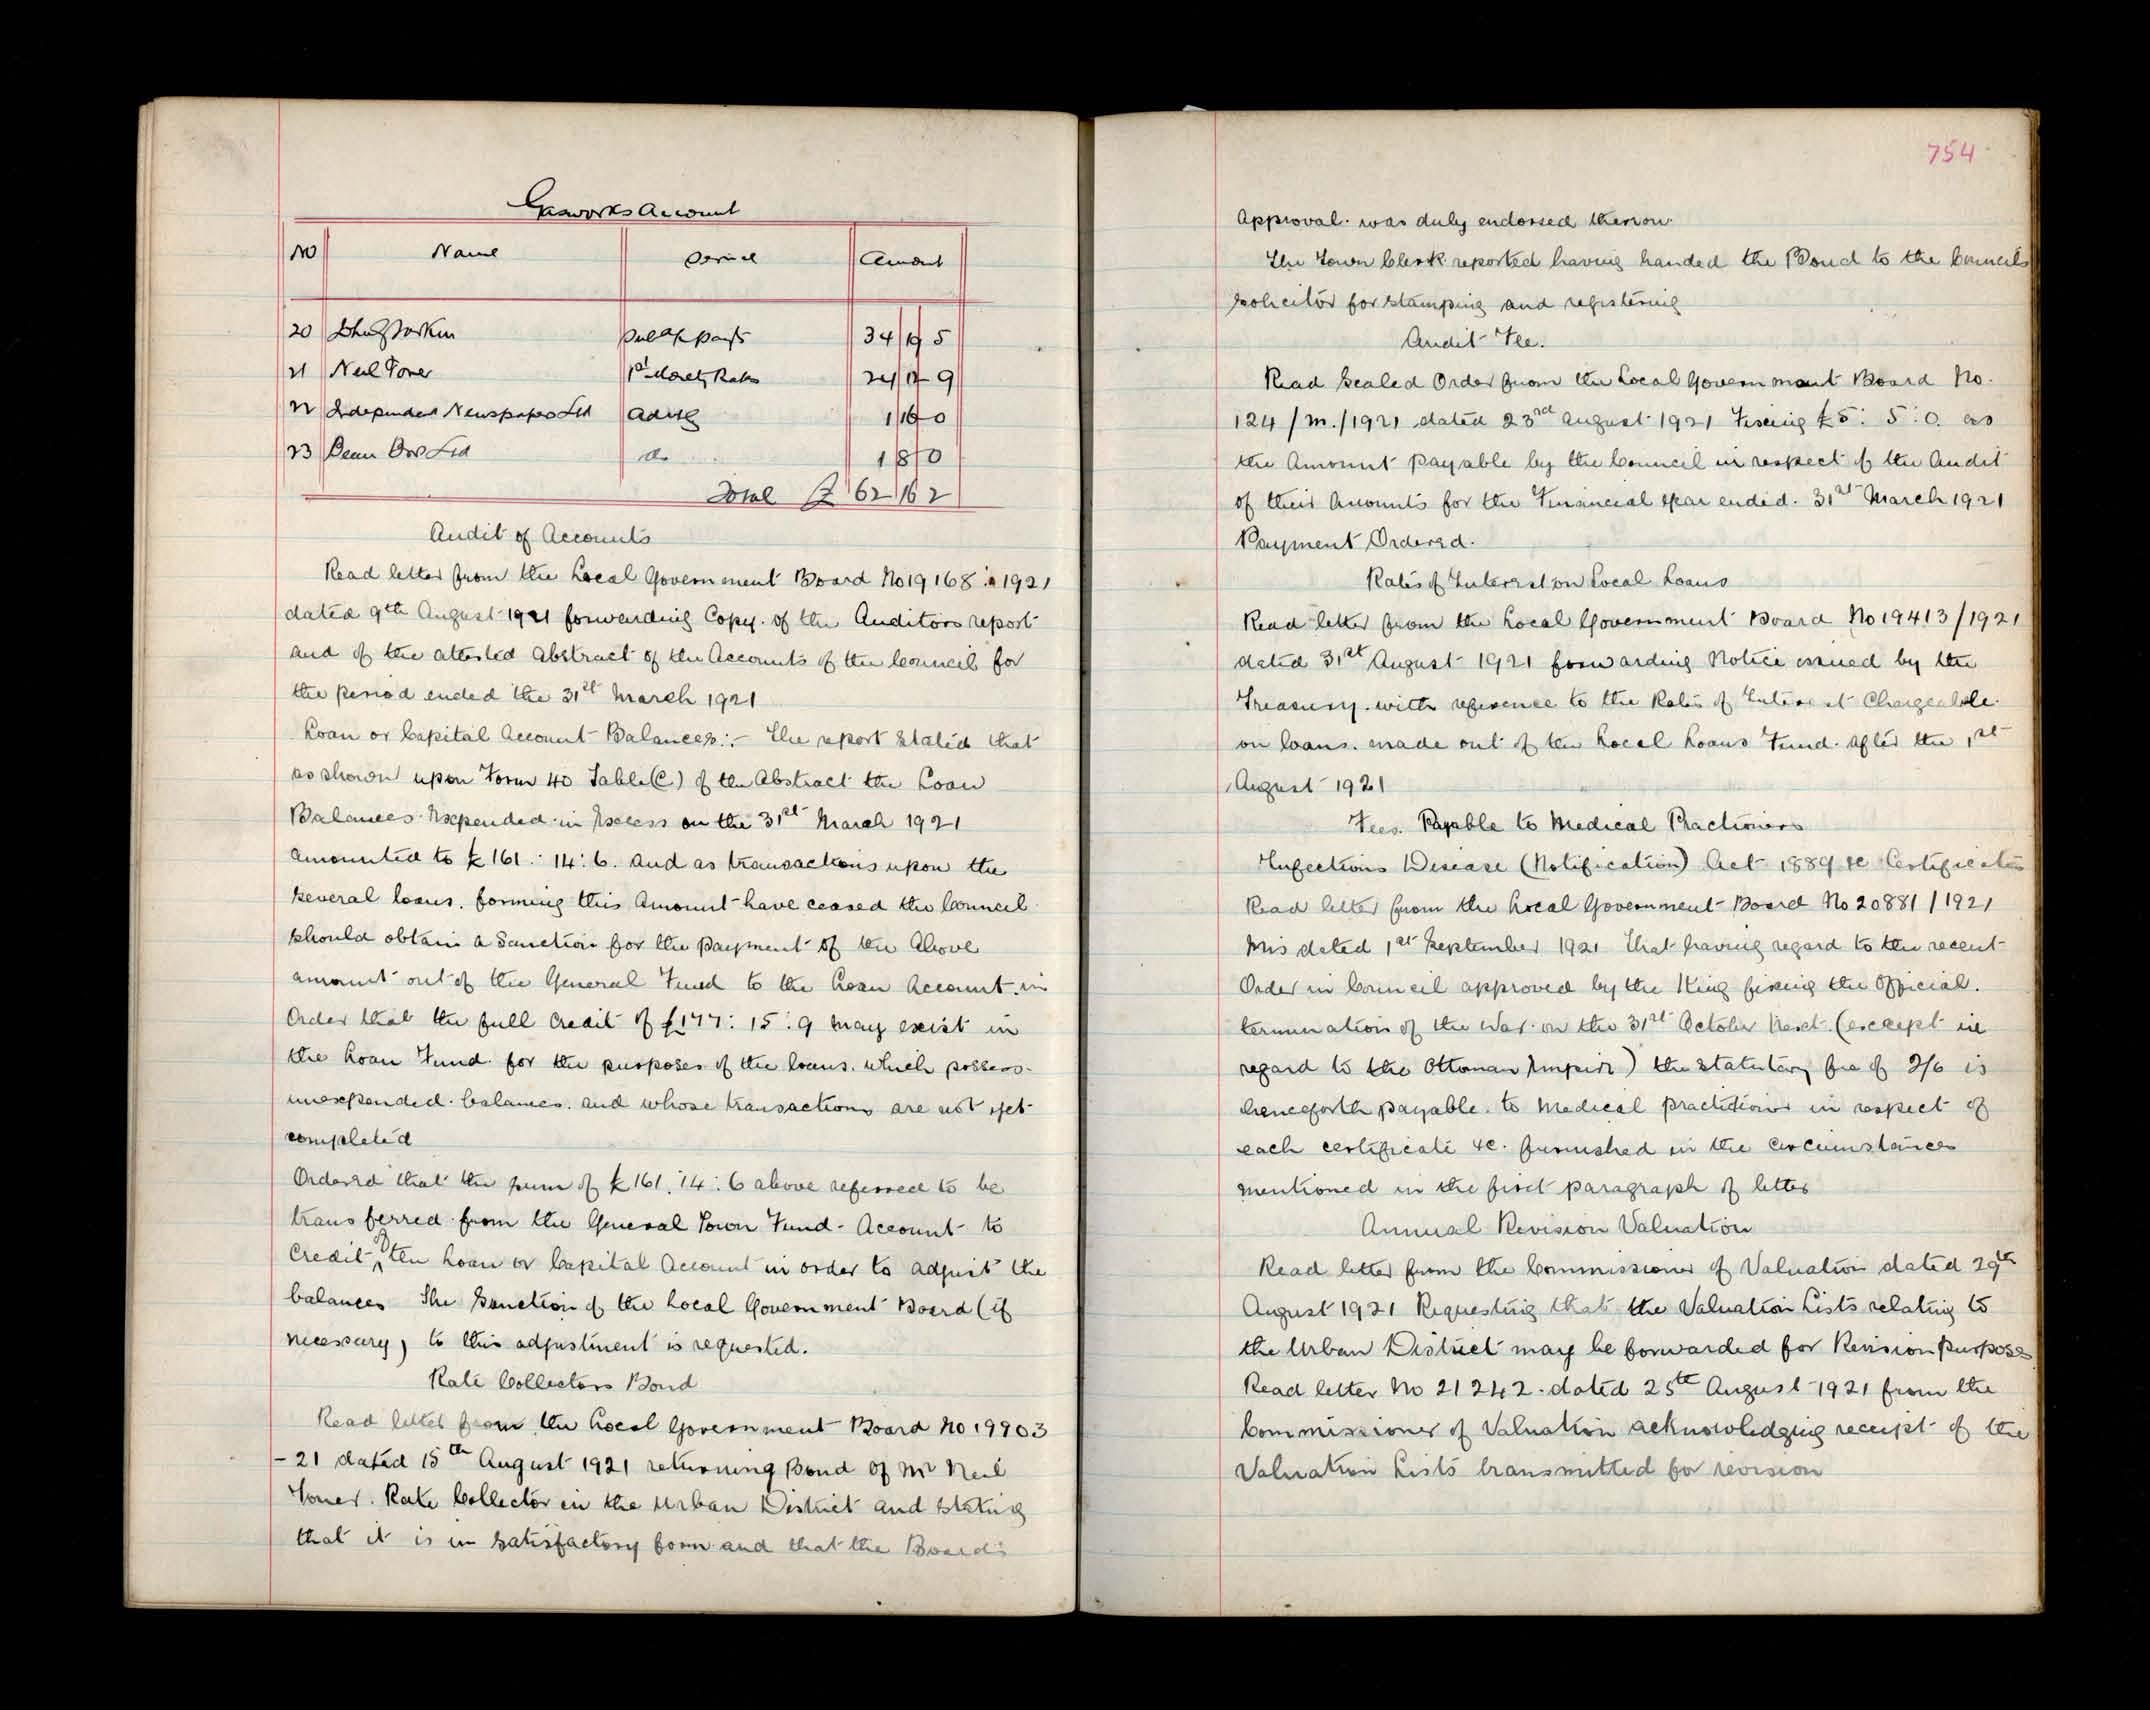 Gasworks Account
No Name Service Amount
20 34 19 5
21 Neil Toner 1st Moiety Rates 24 12 9
22 Independent Newspapers Ltd Advtg 1 16 0
23 Bean Bros Ltd do 1 8 0
Total £ 62 16 2
Audit of Accounts
Read letter from the Local Government Board No 19168 : 1921
dated 9th August 1921 forwarding Copy. of the Auditors report
and of the attested Abstract of the Accounts of the Council for
the period ended the 31st March 1921
Loan or Capital Account Balances:- The report stated that
as shown upon Form 40 Table (C) of the Abstract the Loan
Balances Expended in Excess on the 31st March 1921
amounted to £161 : 14 : 6. and as transactions upon the
several loans. forming this Amount have ceased the Council
should obtain a Sanction for the payment of the Above
amount out of the General Fund to the Loan Account. in
Order that the full Credit of £177 : 15 : 9 may exist in
the Loan Fund for the purposes of the loans. which possess
unexpended balances. and whose transactions are not yet
completed
Ordered that the sum of £161 : 14 : 6 above referred to be
transferred from the General Town Fund Account to
Credit of the Loan or Capital Account in order to adjust the
balances The Sanction of the Local Government Board (if
necessary) to this adjustment is requested.
Rate Collectors Bond
Read letter from the Local Government Board No 19903
-21 dated 15th August 1921 returning Bond of Mr Neil
Toner. Rate Collector in the Urban District and stating
that it is in satisfactory form and that the Board's
754
Approval was duly endorsed thereon.
The Town Clerk reported having handed the Bond to the Councils
Solicitor for stamping and registering
Audit Fee.
Read Sealed Order from the Local Government Board No.
124/M./1921 dated 23rd August 1921 Fixing £5 : 5 : 0. as
the Amount payable by the Council in respect of the Audit
of their Accounts for the Financial year ended. 31st March 1921
Payment Ordered.
Rates of Interest on Local Loans
Read letter from the Local Government Board No 19413/1921
dated 31st August 1921 forwarding Notice issued by the
Treasury. with reference to the Rates of Interest Chargeable
on loans. made out of the Local Loans Fund. After the 1st
August 1921
Fees. Payable to Medical Practioners
Infectious Disease (Notification) Act 1889 &c Certificates
Read letter from the Local Government Board No 20881/1921
Mis dated 1st September 1921 That having regard to the recent
Order in Council approved by the King fixing the Official.
termination of the War on the 31st October next. (except in
regard to the Ottoman Empire) the Statutory fee of 2/6 is
henceforth payable. to Medical practitioners in respect of
each certificate &c. furnished in the circumstances
mentioned in the first paragraph of letter
Annual Revision Valuation
Read letter from the Commissioner of Valuation dated 29th
August 1921 Requesting that the Valuation Lists relating to
the Urban District may be forwarded for Revision purposes
Read letter No 21242. dated 25th August 1921 from the
Commissioner of Valuation acknowledging receipt of the
Valuation Lists transmitted for revision